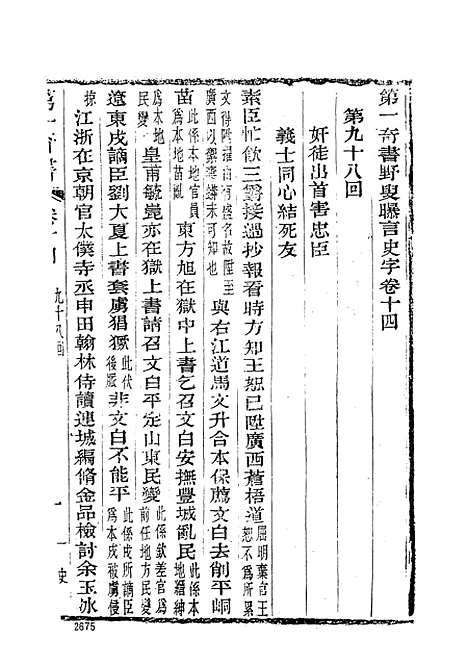 第一奇書野叟曝言史字卷十四
第九十八回
奸徒出首害忠臣
義士同心結死友
素臣忙飲三爵接過抄報看時方知王恕已陞廣西蒼梧道
恕不爲所累
文得陞
廣西以
與右江道馬文升合本保薦文白去削平峒
苗
此係本地官員
爲本地苗亂
東方旭在獄中上書乞召文白安撫豐城亂民
此係本
地縉紳
爲本地
民變
皇甫毓崑亦在獄上書請召文白平定山東民變
此係欽差官爲
前任地方民變
遼東戍謫臣劉大夏上書套虜猖獗
此伏
後脈
非文白不能平
此係戍所謫臣
爲本戍被虜侵
掠
江浙在京朝官太僕寺丞申田翰林侍讀連城編脩金品檢討余玉冰
第一奇書
卷十四
九十八回
一
史
2675